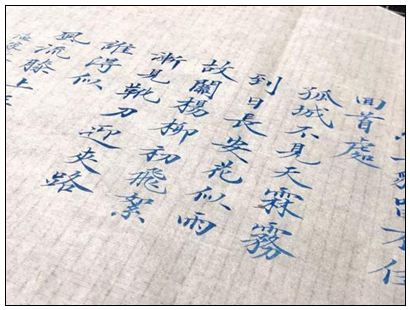 留不住
回首處
孤城不見天霖霧
到日長安花似雨
故關楊柳初飛絮
漸見靴刀迎夾路
誰得似
風流膝上王